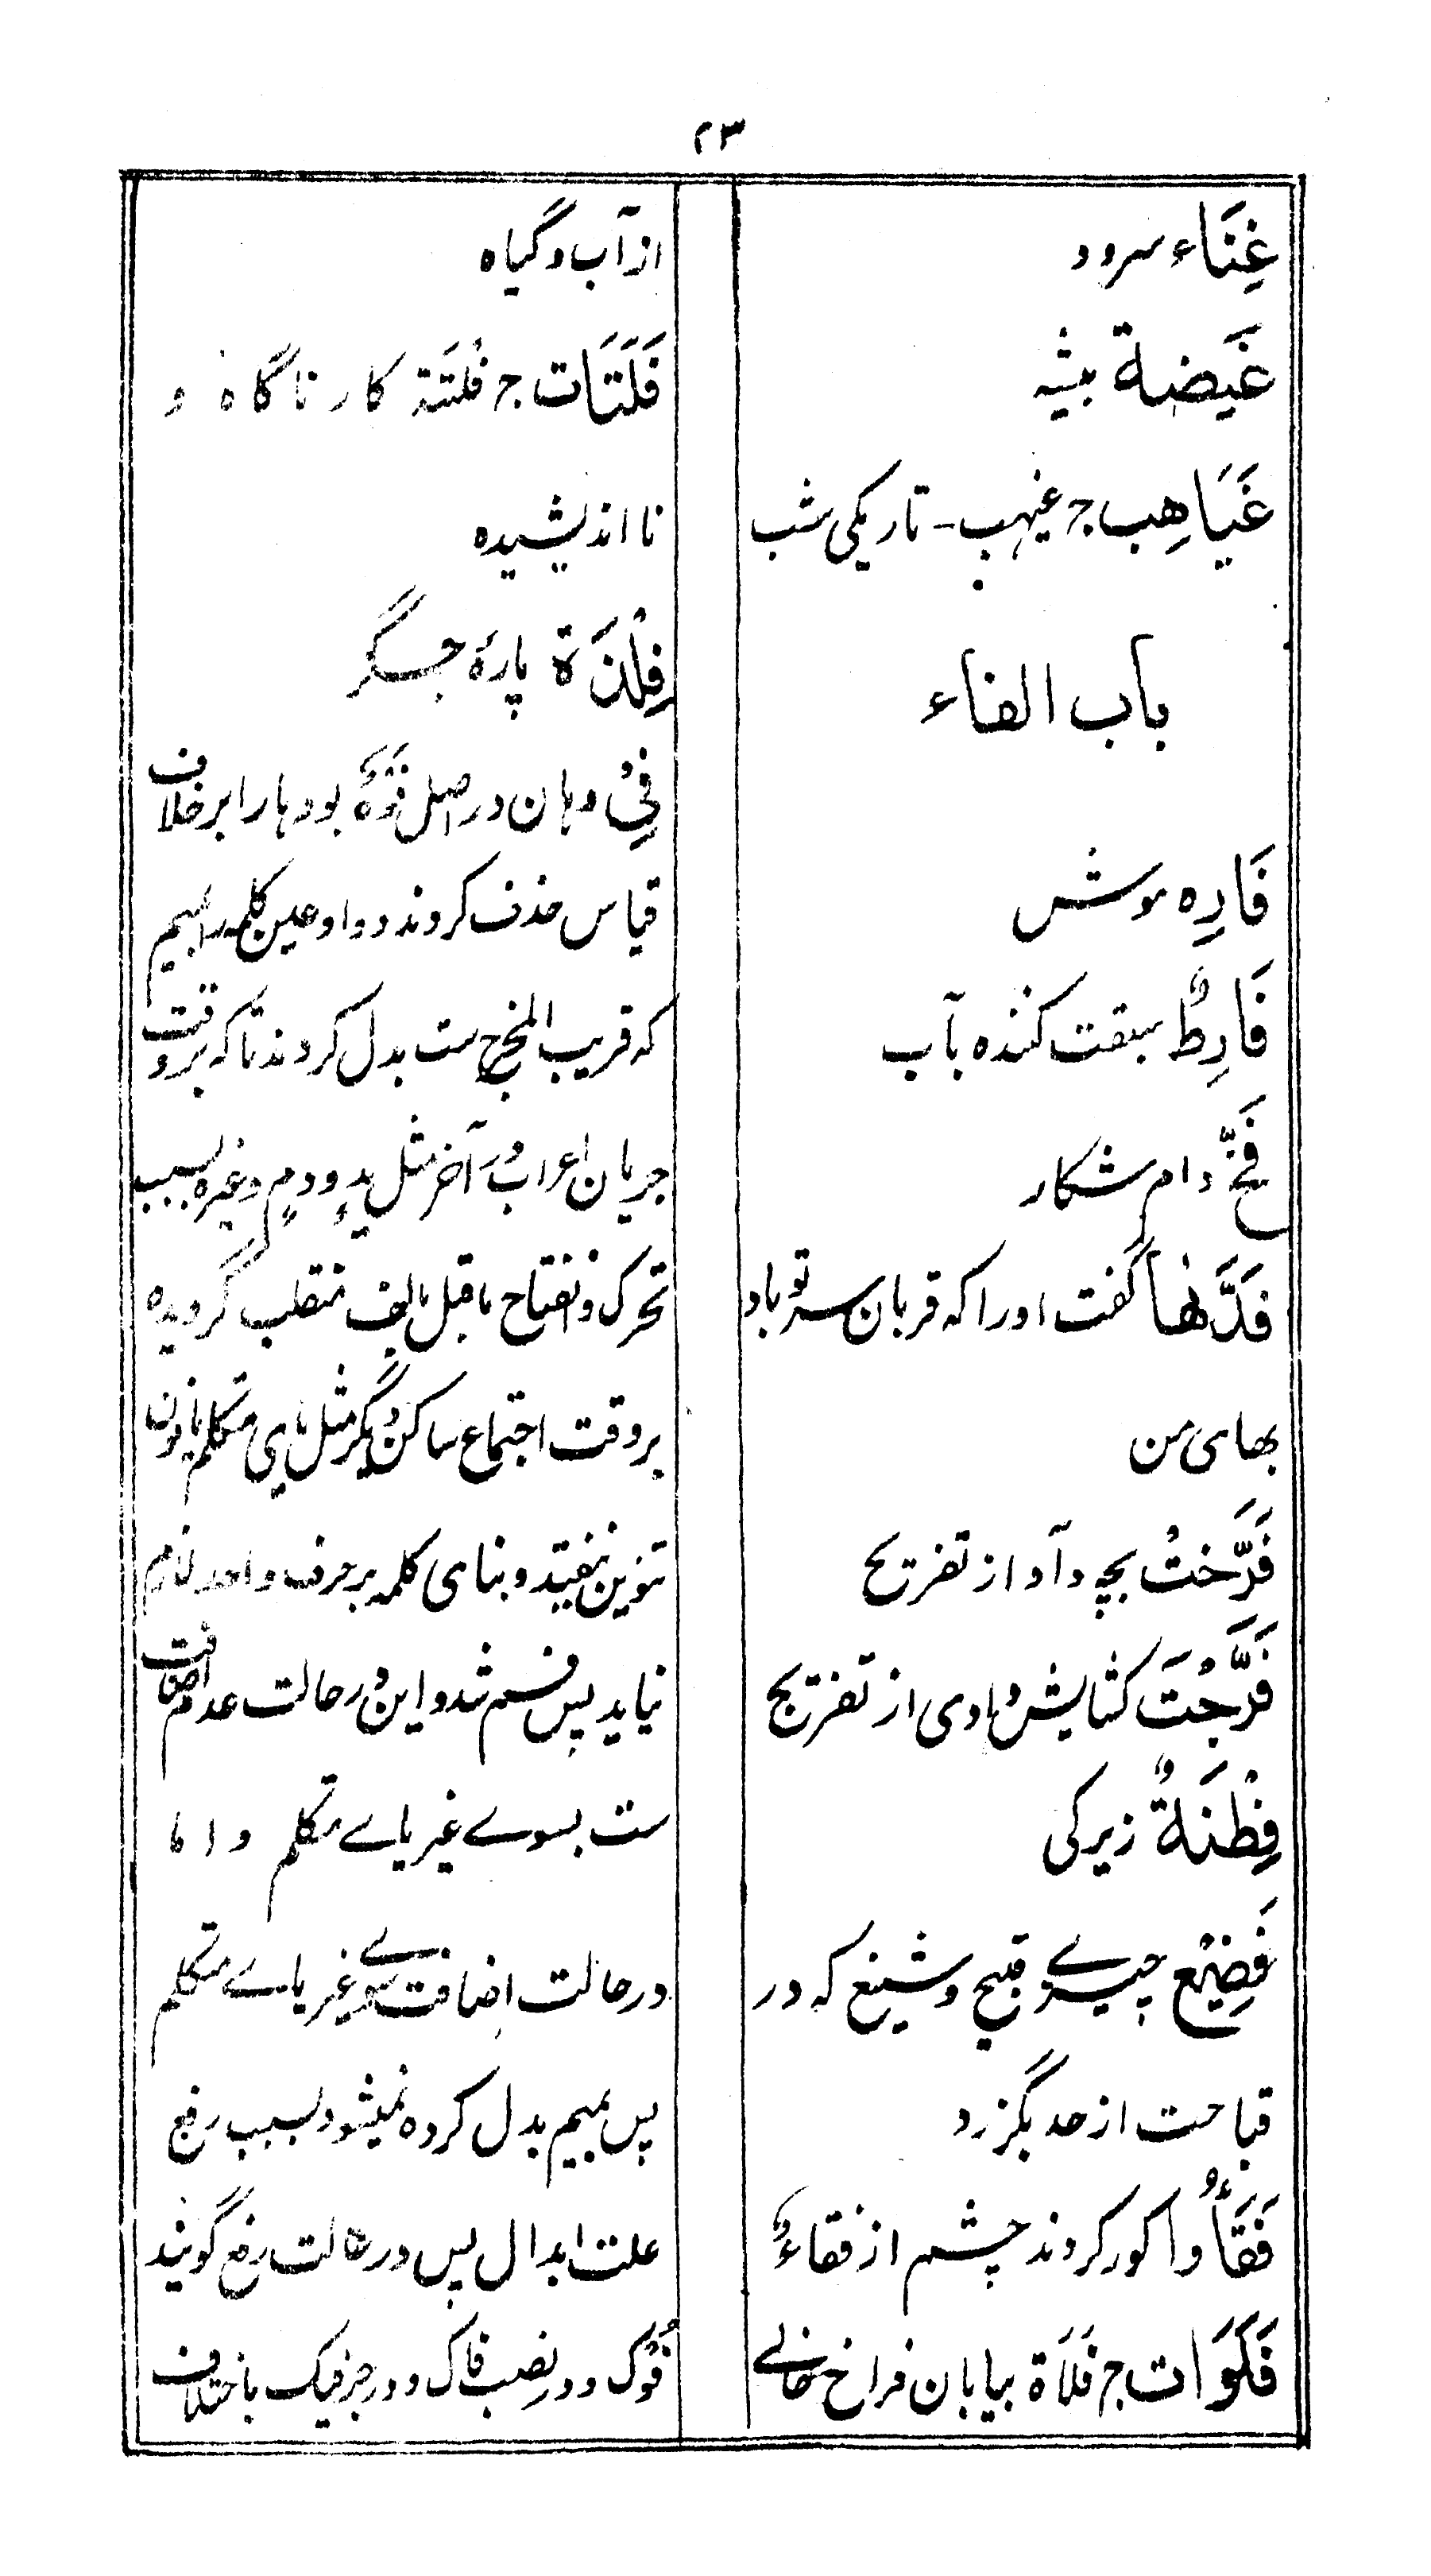 ۲۳
غِنَاء سرود
غَيضة بیشہ
غَيَاهِب ج غیہب - تاریکی شب
باب الفاء
فَارِہ موش
فَارِطٌ سبقت کننده بآب
فَخّ دام شکار
فَدَّٮٰها گفت اورا کہ قربان سر تو باد
بهای من
فَرَّختُ بچہ دآد از تفریخ
فَرَّجْتَ کشایش دادی از تفریج
فِطْنَةٌ زیرکی
فَضِيْع چیزے قبیح و شنیع کہ در
قباحت از حد بگزرد
فَقَأُوا کور کردند چشم از فقاءٌ
فَلَوَات ج فَلَاة بیابان فراخ خالے
از آب و گیاه
فَلَتَات ج فَلْتَة کار ناگاه و
نا اندیشیده
فِلْذَة پارۂ جگر
فِيْ دہان در اصل فَوْهٌ بود ہا را بر خلاف
قیاس حذف کردند و واو عین کلمہ را بمیم
کہ قریب المخرج ست بدل کردند تا کہ بر وقت
جریان اعراب بر آخر مثل یدٍ و دمٍ وغیرہ بسبب
تحرک و انفتاح ما قبل بالف منقلب گردیده
بر وقت اجتماع ساکن دیگر مثل یای متکلم یا نون
تنوین نیفتد و بنای کلمہ بر حرف واحد لازم
نیاید پس فم شد و این در حالت عدم اضافت
ست بسوے غیر یاے متکلم و اما
در حالت اضافت بسوے غیر یاے متکلم
پس بمیم بدل کرده نمیشود بسبب رفع
علت ابدال پس در حالت رفع گویند
فُوْک و در نصب فاک و در جر فیک باختلاف